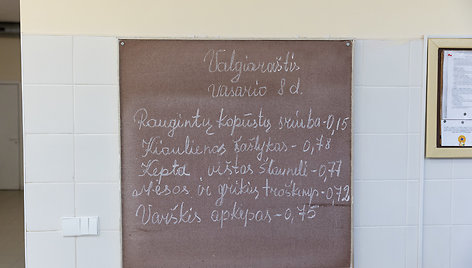 Valgiaraštis
vasario 8 d.
Raugintų kopūstų sriuba-0,15
Kiaulienos šašlykas-0,78
Kepta vištos šlaunelė-0,77
Mėsos ir grikių troškinys-0,72
Varškės apkepas-0,75